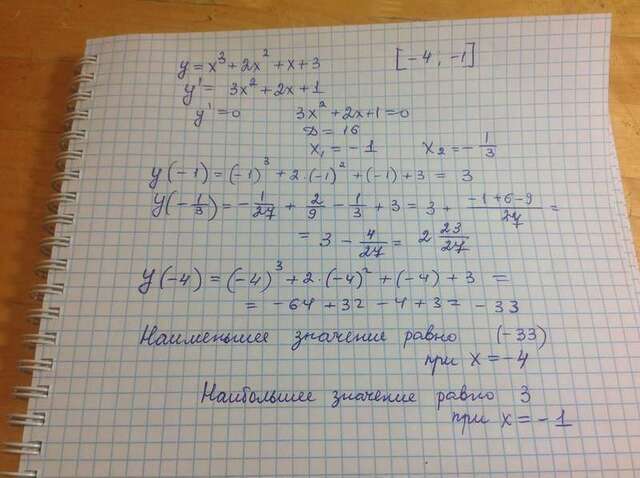 y = x³ + 2x² + x + 3 [-4; -1]
y' = 3x² + 2x + 1
y' = 0 3x² + 2x + 1 = 0
D = 16
x₁ = -1 x₂ = -1/3
y(-1) = (-1)³ + 2·(-1)² + (-1) + 3 = 3
y(-1/3) = -1/27 + 2/9 - 1/3 + 3 = 3 + (-1+6-9)/27 =
= 3 - 4/27 = 2 23/27
y(-4) = (-4)³ + 2·(-4)² + (-4) + 3 =
= -64 + 32 - 4 + 3 = -33
Наименьшее значение равно (-33)
при x = -4
Наибольшее значение равно 3
при x = -1